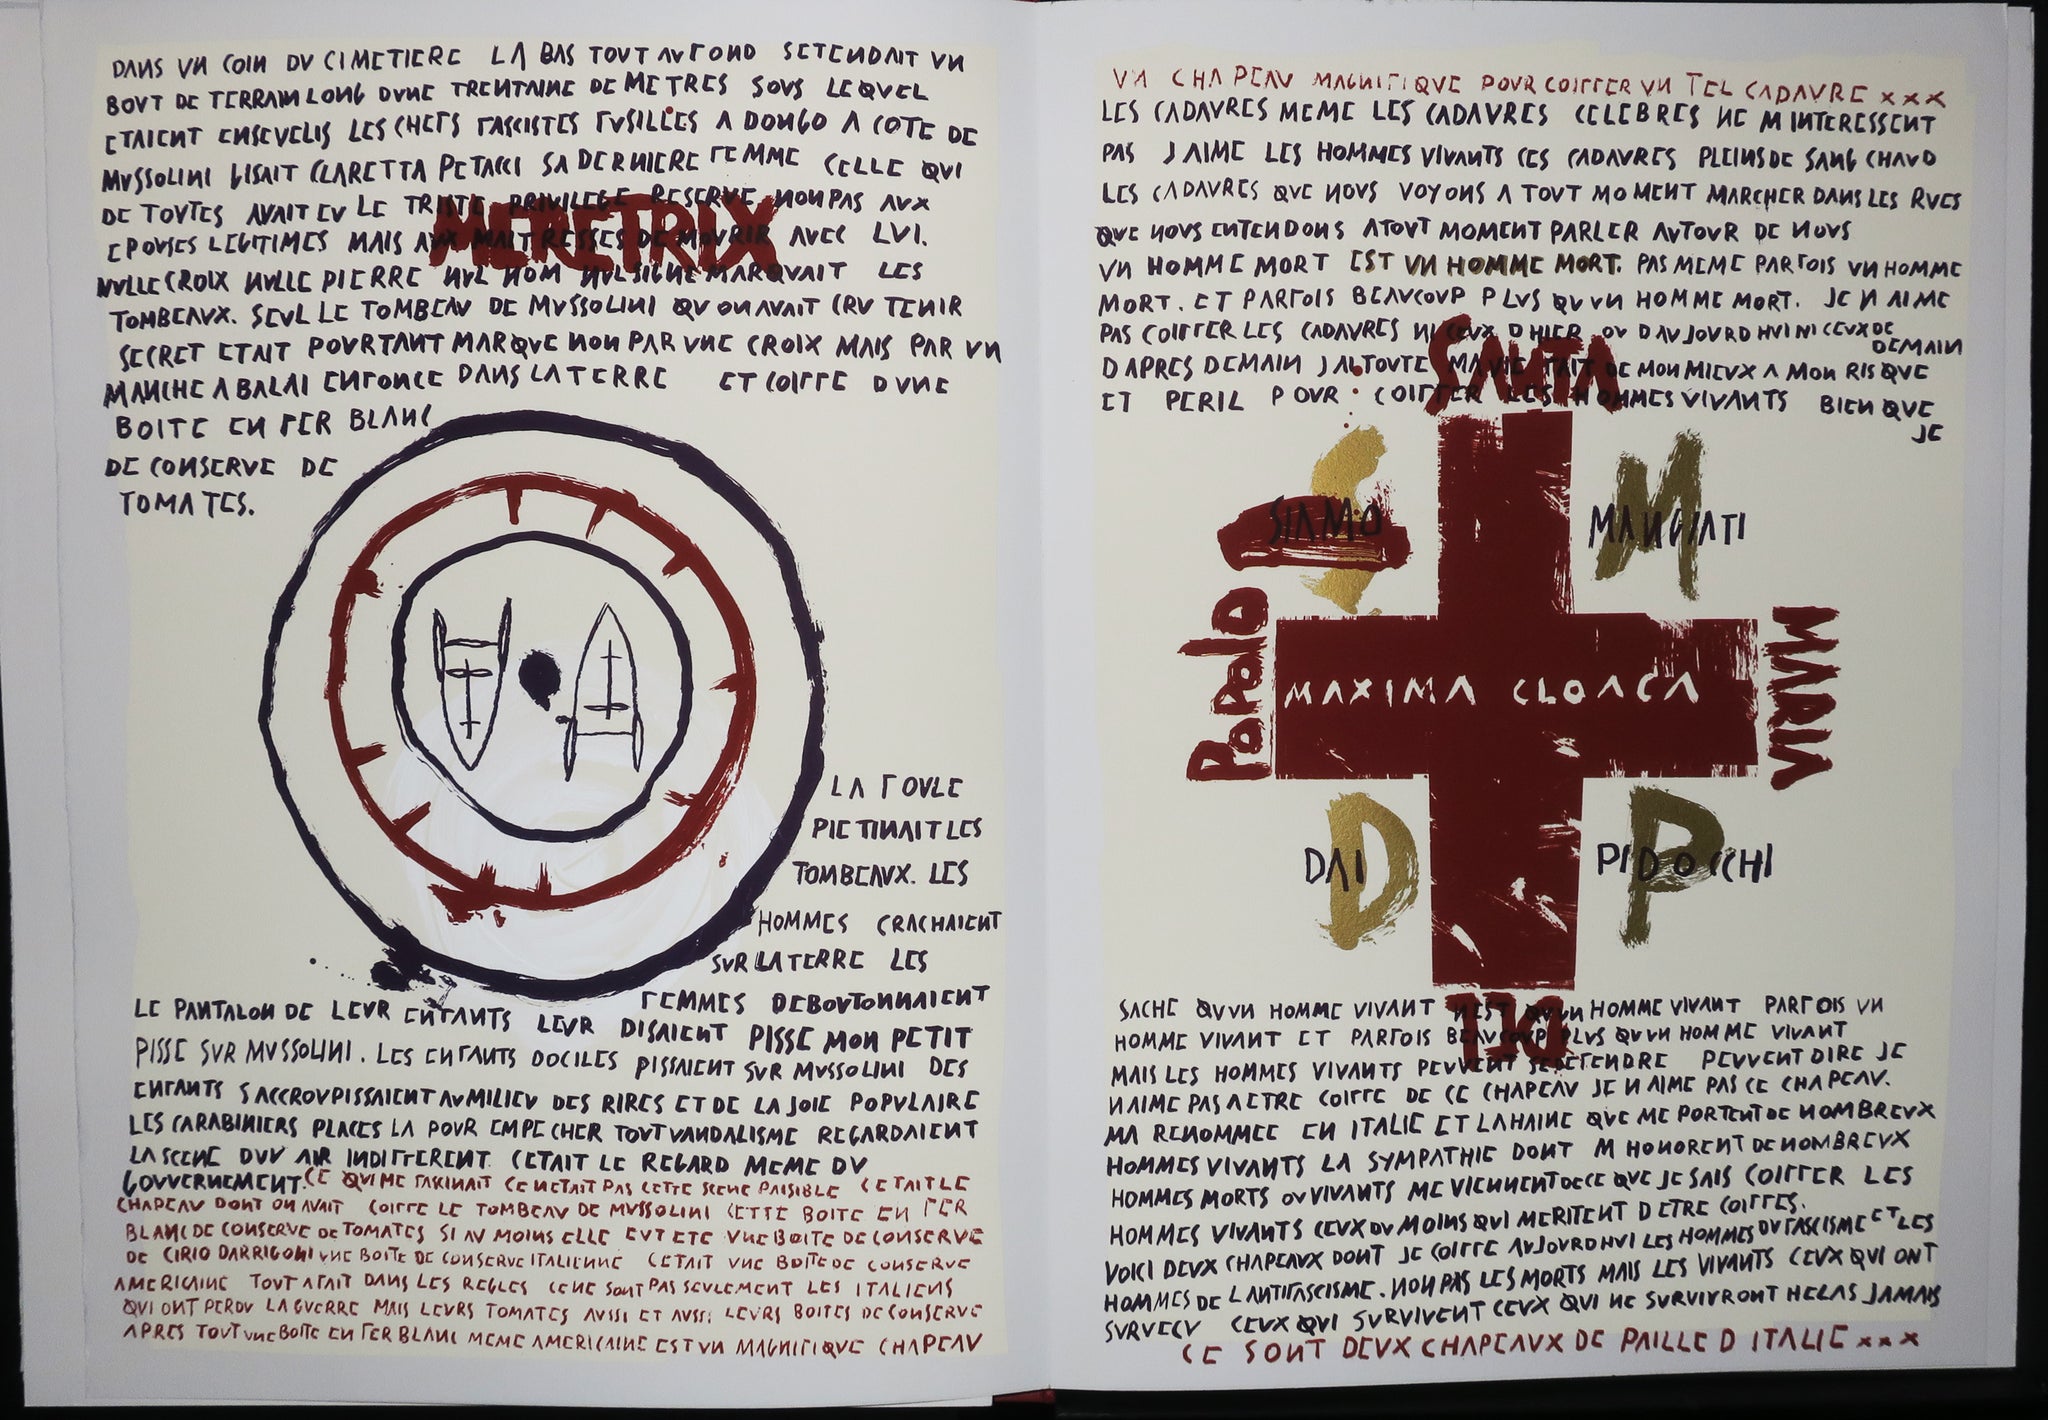 DANS UN COIN DU CIMETIERE LA BAS TOUT AU FOND SETENDAIT UN
BOUT DE TERRAIN LONG DUNE TRENTAINE DE METRES SOUS LEQUEL
ETAIENT ENSEVELIS LES CHEFS FASCISTES FUSILLES A DONGO A COTE DE
MUSSOLINI GISAIT CLARETTA PETACCI SA DERNIERE FEMME CELLE QUI
DE TOUTES AVAIT EU LE TRISTE PRIVILEGE RESERVE NON PAS AUX
MERETRIX
EPOUSES LEGITIMES MAIS AUX MAITRESSES DE MOURIR AVEC LUI.
NULLE CROIX NULLE PIERRE NUL NOM NUL SIGNE MARQUAIT LES
TOMBEAUX. SEUL LE TOMBEAU DE MUSSOLINI QU ON AVAIT CRU TENIR
SECRET ETAIT POURTANT MARQUE NON PAR UNE CROIX MAIS PAR UN
MANCHE A BALAI ENFONCE DANS LA TERRE ET COIFFE DUNE
BOITE EN FER BLANC
DE CONSERVE DE
TOMATES.
LA FOULE
PIETINAIT LES
TOMBEAUX. LES
HOMMES CRACHAIENT
SUR LA TERRE LES
FEMMES DEBOUTONNAIENT
LE PANTALON DE LEUR ENFANTS LEUR DISAIENT PISSE MON PETIT
PISSE SUR MUSSOLINI. LES ENFANTS DOCILES PISSAIENT SUR MUSSOLINI DES
ENFANTS S ACCROUPISSAIENT AU MILIEU DES RIRES ET DE LA JOIE POPULAIRE
LES CARABINIERS PLACES LA POUR EMPECHER TOUT VANDALISME REGARDAIENT
LA SCENE DUN AIR INDIFFERENT. CETAIT LE REGARD MEME DU
GOUVERNEMENT. CE QUI ME FASCINAIT CE NETAIT PAS CETTE SCENE PAISIBLE CETAIT LE
CHAPEAU DONT ON AVAIT COIFFE LE TOMBEAU DE MUSSOLINI CETTE BOITE EN FER
BLANC DE CONSERVE DE TOMATES SI AU MOINS ELLE EUT ETE UNE BOITE DE CONSERVE
DE CIRIO DARRIGONI UNE BOITE DE CONSERVE ITALIENNE CETAIT UNE BOITE DE CONSERVE
AMERICAINE TOUT A FAIT DANS LES REGLES CE NE SONT PAS SEULEMENT LES ITALIENS
QUI ONT PERDU LA GUERRE MAIS LEURS TOMATES AUSSI ET AUSSI LEURS BOITES DE CONSERVE
APRES TOUT UNE BOITE EN FER BLANC MEME AMERICAINE EST UN MAGNIFIQUE CHAPEAU
UN CHAPEAU MAGNIFIQUE POUR COIFFER UN TEL CADAVRE xxx
LES CADAVRES MEME LES CADAVRES CELEBRES NE M INTERESSENT
PAS J AIME LES HOMMES VIVANTS CES CADAVRES PLEINS DE SANG CHAUD
LES CADAVRES QUE NOUS VOYONS A TOUT MOMENT MARCHER DANS LES RUES
QUE NOUS ENTENDONS A TOUT MOMENT PARLER AUTOUR DE NOUS
UN HOMME MORT EST UN HOMME MORT. PAS MEME PARFOIS UN HOMME
MORT. ET PARFOIS BEAUCOUP PLUS QU UN HOMME MORT. JE N AIME
PAS COIFFER LES CADAVRES NI CEUX D HIER OU D AUJOURD HUI NI CEUX DE
DEMAIN
D APRES DEMAIN J AI TOUTE MA VIE FAIT DE MON MIEUX A MON RISQUE
SANTA
ET PERIL POUR COIFFER LES HOMMES VIVANTS BIEN QUE
JE
S M
SIAMO MANGIATI
POPOLO
MARIA
MAXIMA CLOACA
D P
DAI PIDOCCHI
DEL
SACHE QUUN HOMME VIVANT NEST QUUN HOMME VIVANT PARFOIS UN
HOMME VIVANT ET PARFOIS BEAUCOUP PLUS QUUN HOMME VIVANT
MAIS LES HOMMES VIVANTS PEUVENT SE DEFENDRE PEUVENT DIRE JE
NAIME PAS A ETRE COIFFE DE CE CHAPEAU JE N AIME PAS CE CHAPEAU.
MA RENOMMEE EN ITALIE ET LA HAINE QUE ME PORTENT DE NOMBREUX
HOMMES VIVANTS LA SYMPATHIE DONT M HONORENT DE NOMBREUX
HOMMES MORTS OU VIVANTS ME VIENNENT DE CE QUE JE SAIS COIFFER LES
HOMMES VIVANTS CEUX DU MOINS QUI MERITENT D ETRE COIFFES.
VOICI DEUX CHAPEAUX DONT JE COIFFE AUJOURDHUI LES HOMMES DU FASCISME ET LES
HOMMES DE L ANTIFASCISME. NON PAS LES MORTS MAIS LES VIVANTS CEUX QUI ONT
SURVECU CEUX QUI SURVIVENT CEUX QUI NE SURVIVRONT HELAS JAMAIS
CE SONT DEUX CHAPEAUX DE PAILLE D ITALIE xxx